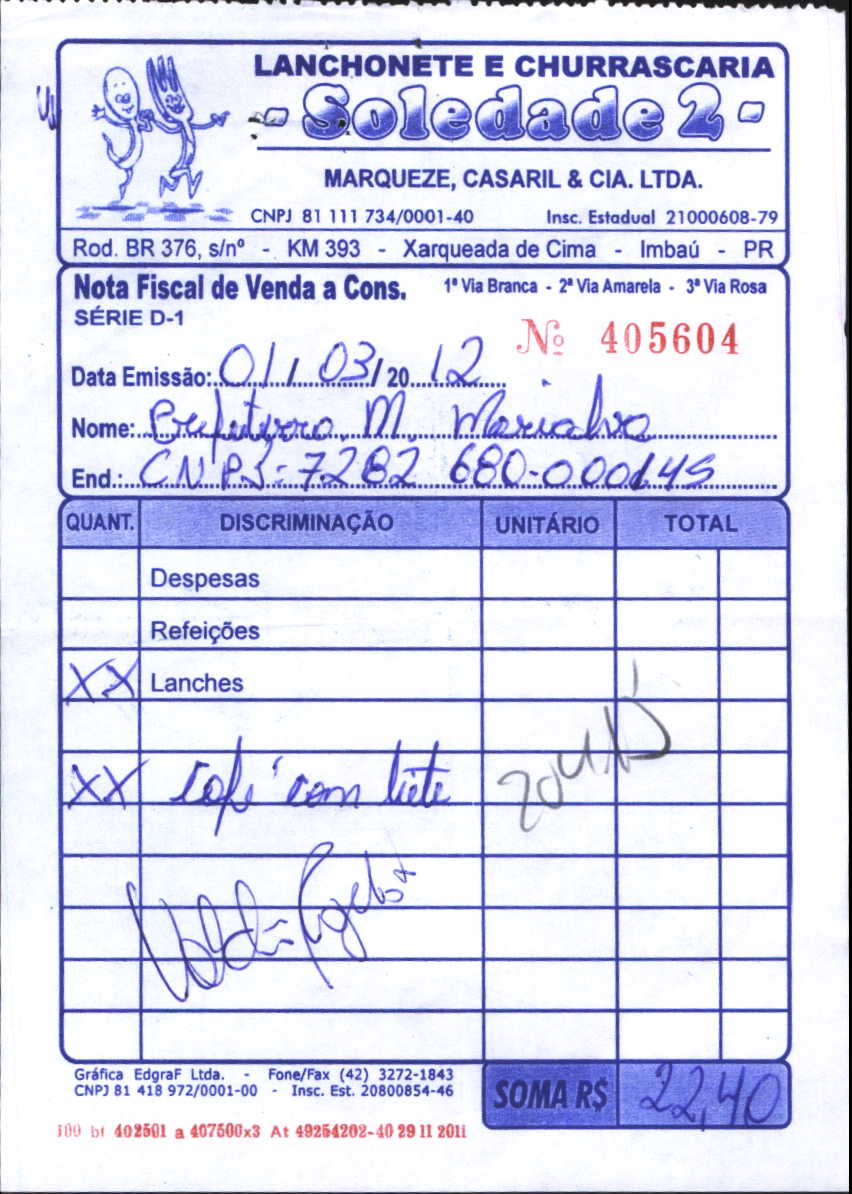 LANCHONETE E CHURRASCARIA
- Soledade 2 -
MARQUEZE, CASARIL & CIA. LTDA.
CNPJ 81 111 734/0001-40 Insc. Estadual 21000608-79
Rod. BR 376, s/nº - KM 393 - Xarqueada de Cima - Imbaú - PR
Nota Fiscal de Venda a Cons. 1ª Via Branca - 2ª Via Amarela - 3ª Via Rosa
SÉRIE D-1
Nº 405604
Data Emissão: 01 / 03 / 20 12
Nome: Prefeitura M. Marialva
End.: CNPJ: 7.282 680-000145
QUANT. DISCRIMINAÇÃO UNITÁRIO TOTAL
Despesas
Refeições
XX Lanches
XX Café com leite
Gráfica EdgraF Ltda. - Fone/Fax (42) 3272-1843
CNPJ 81 418 972/0001-00 - Insc. Est. 20800854-46
SOMA R$ 22,40
100 bl 402501 a 407500x3 At 49254202-40 29 11 2011